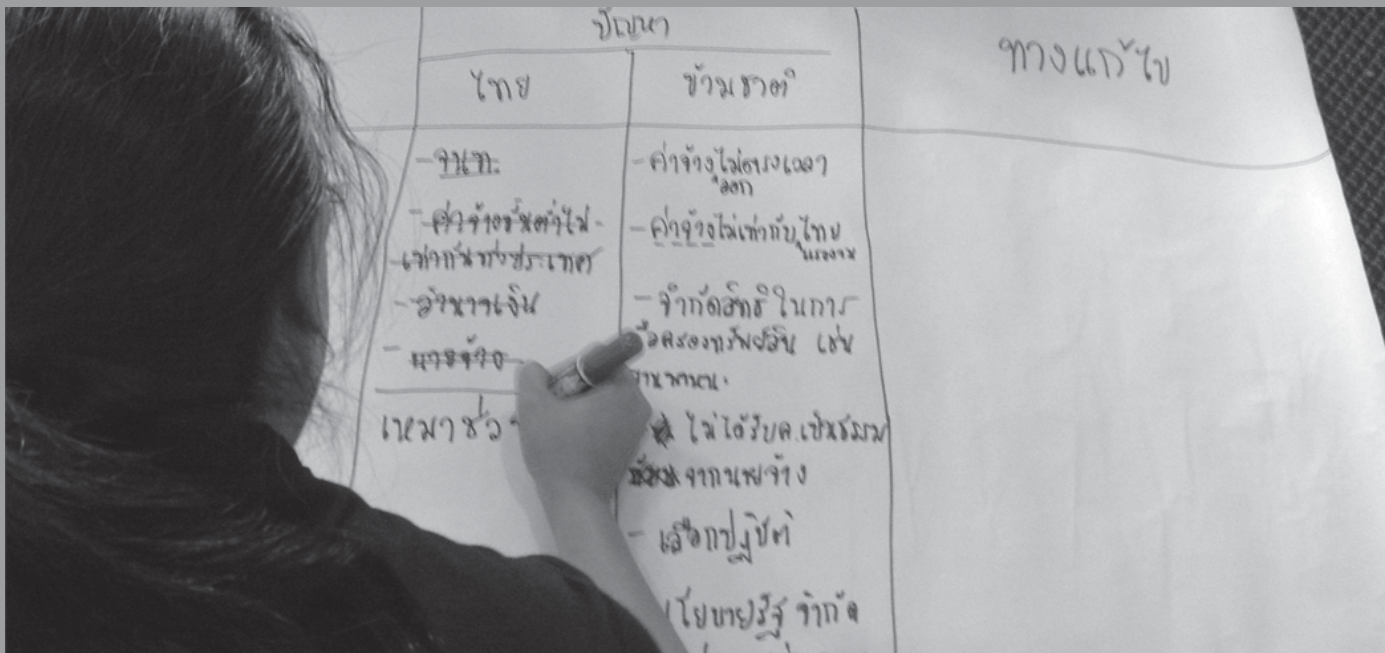 ปัญหา
ไทย
ข้ามชาติ
ทางแก้ไข
- จนท.
- ค่าจ้างขั้นต่ำไม่
เท่ากันทั่วประเทศ
- อำนาจเงิน
- นายจ้าง
เหมาช่ว
- ค่าจ้างไม่ตรงเวลา
ออก
- ค่าจ้างไม่เท่ากับไทย
แรงงาน
- จำกัดสิทธิในการ
ถือครองทรัพย์สิน เช่น
ยานพาหนะ
ไม่ได้รับค.เป็นธรรม
จากนายจ้าง
- เลือกปฏิบัติ
นโยบายรัฐ จำกัด